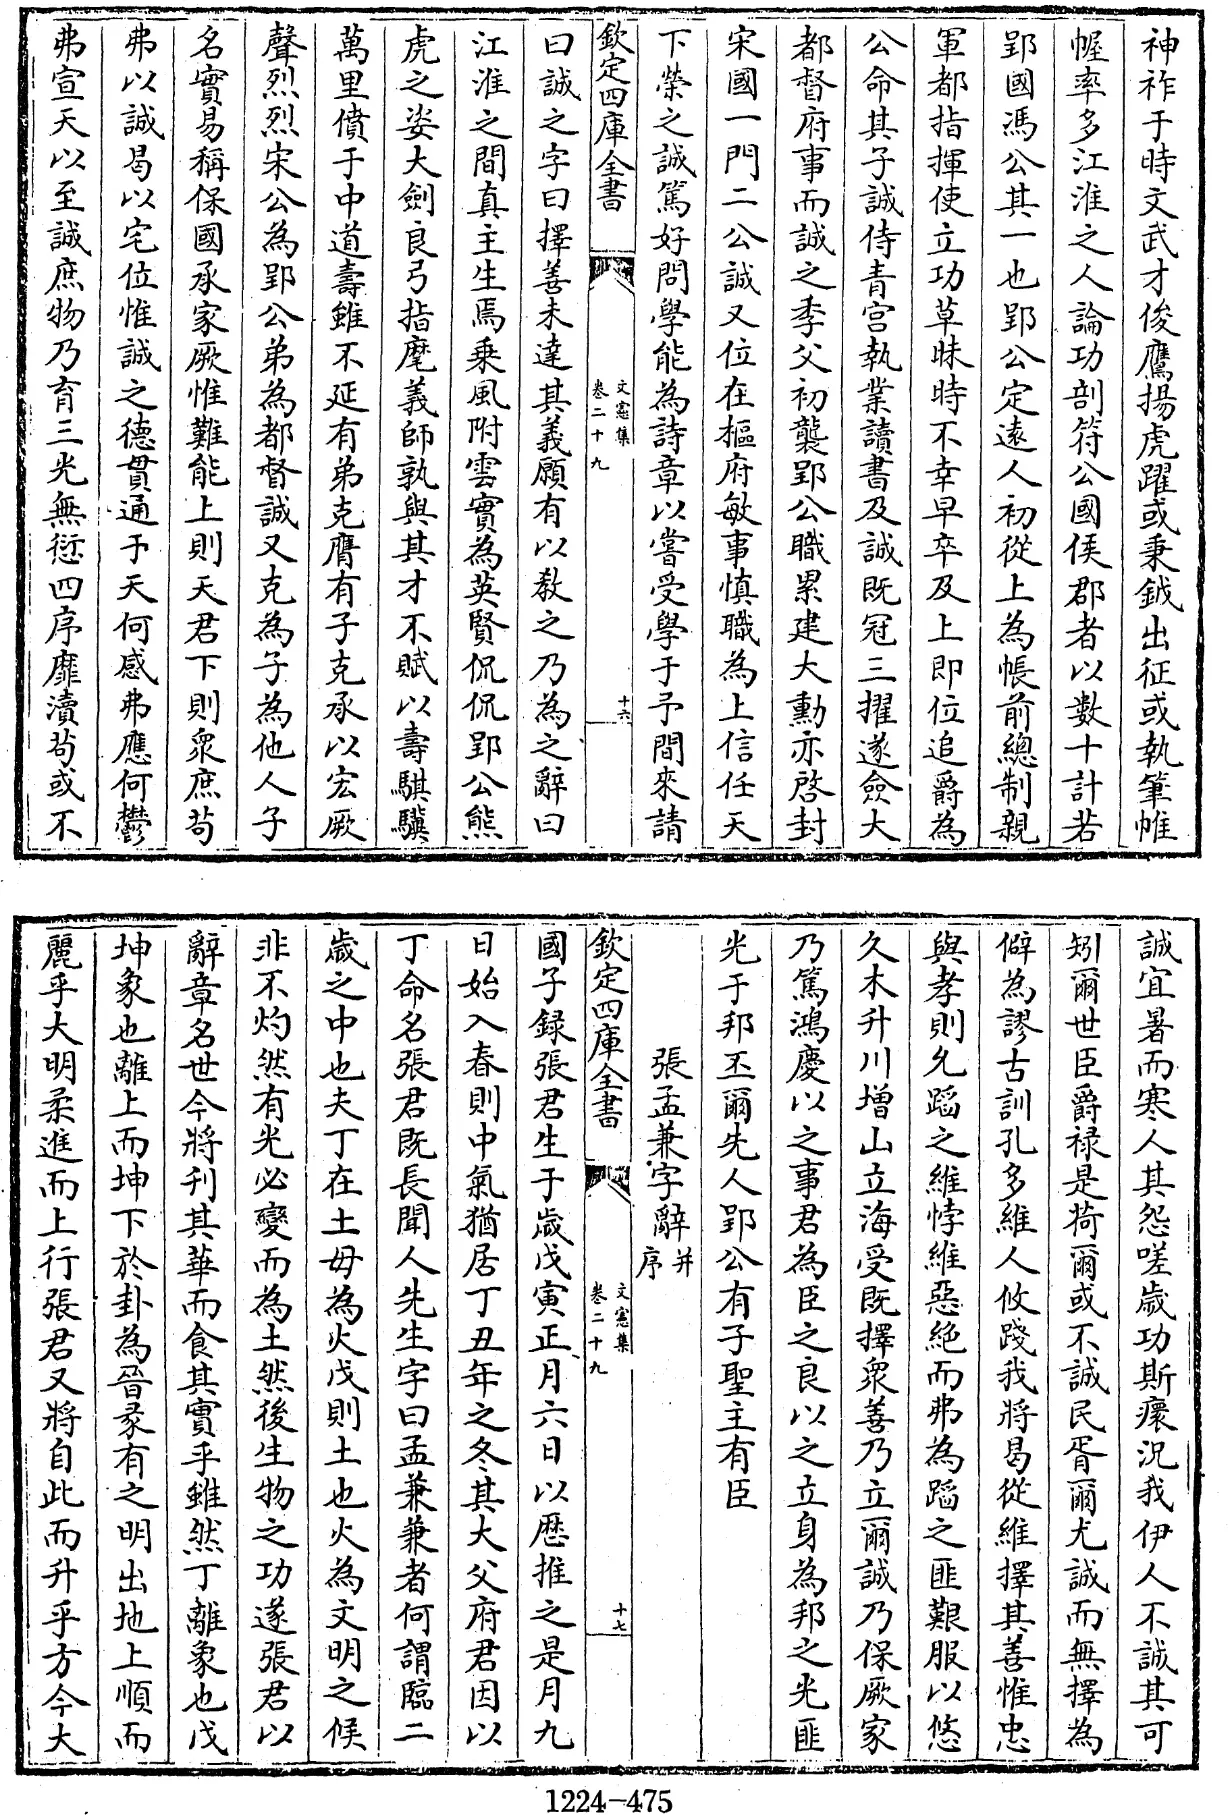 神祚于時文武才俊鷹揚虎躍或秉鉞出征或執筆帷
幄率多江淮之人論功剖符公國侯郡者以數十計若
郢國馮公其一也郢公定遠人初從上為帳前總制親
軍都指揮使立功草昧時不幸早卒及上即位追爵為
公命其子誠侍青宮執業讀書及誠既冠三擢遂僉大
都督府事而誠之季父初襲郢公職累建大勳亦啓封
宋國一門二公誠又位在樞府敏事慎職為上信任天
下榮之誠篤好問學能為詩章以嘗受學于予間來請
欽定四庫全書
文憲集
卷二十九
十六
曰誠之字曰擇善未達其義願有以教之乃為之辭曰
江淮之間真主生焉乘風附雲實為英賢侃侃郢公熊
虎之姿大劍良弓指麾義師孰與其才不賦以壽騏驥
萬里僨于中道壽雖不延有弟克膺有子克承以宏厥
聲烈烈宋公為郢公弟為都督誠又克為子為他人子
名實易稱保國承家厥惟難能上則天君下則衆庶苟
弗以誠曷以宅位惟誠之德貫通于天何感弗應何鬱
弗宣天以至誠庶物乃育三光無愆四序靡瀆苟或不
誠宜暑而寒人其怨嗟歲功斯瘝況我伊人不誠其可
矧爾世臣爵祿是荷爾或不誠民胥爾尤誠而無擇為
僻為謬古訓孔多維人攸踐我將曷從維擇其善惟忠
與孝則允蹈之維悖維惡絶而弗為蹈之匪艱服以悠
久木升川增山立海受既擇衆善乃立爾誠乃保厥家
乃篤鴻慶以之事君為臣之良以之立身為邦之光匪
光于邦丕爾先人郢公有子聖主有臣
張孟兼字辭并序
欽定四庫全書
文憲集
卷二十九
十七
國子錄張君生于歲戊寅正月六日以厯推之是月九
日始入春則中氣猶居丁丑年之冬其大父府君因以
丁命名張君既長聞人先生字曰孟兼兼者何謂臨二
歲之中也夫丁在土毋為火戊則土也火為文明之候
非不灼然有光必變而為土然後生物之功遂張君以
辭章名世今將刋其華而食其實乎雖然丁離象也戊
坤象也離上而坤下於卦為晉彖有之明出地上順而
麗乎大明柔進而上行張君又將自此而升乎方今大
1224-475